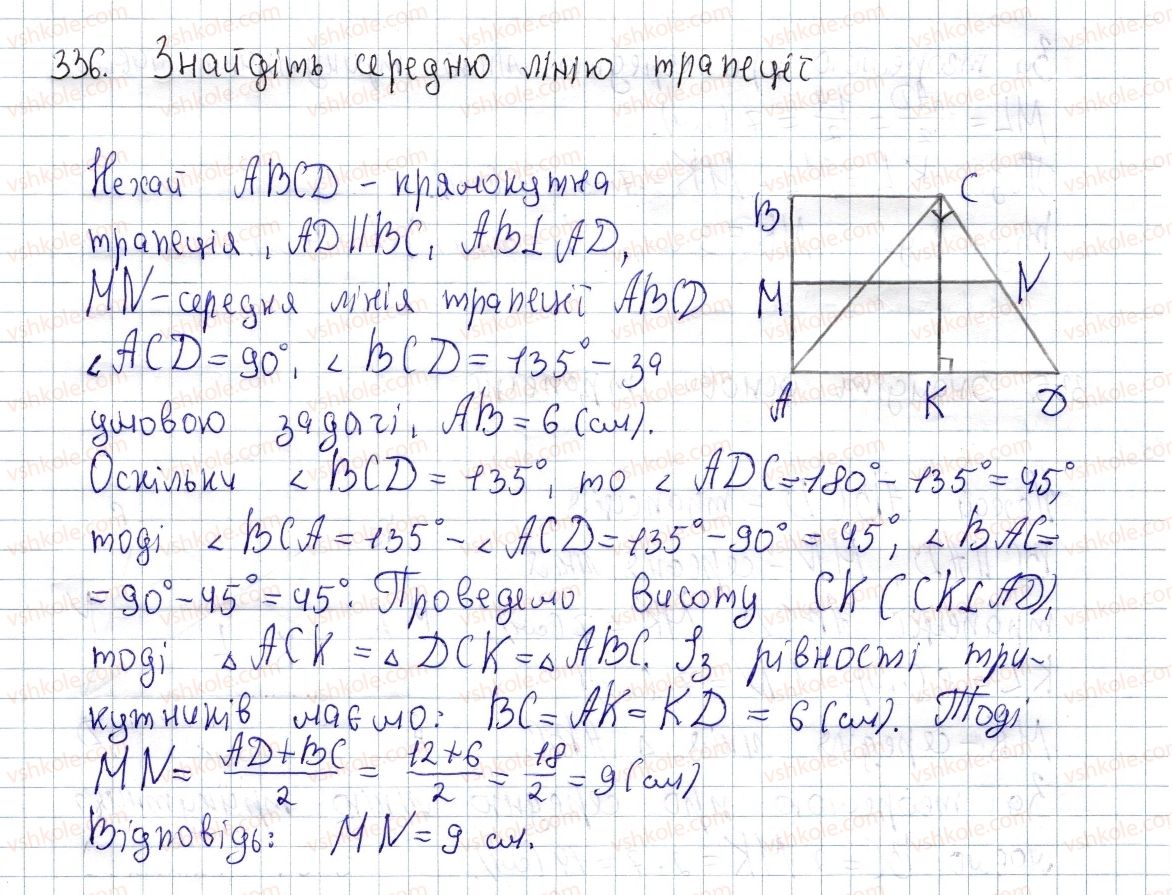 336. Знайдіть середню лінію трапеції
Нехай ABCD – прямокутна
трапеція, AD||BC, AB⊥AD,
MN – середня лінія трапеції ABCD
∠ACD = 90°, ∠BCD = 135° – за
умовою задачі, AB = 6 (см).
Оскільки ∠BCD = 135°, то ∠ADC = 180° – 135° = 45°,
тоді ∠BCA = 135° – ∠ACD = 135° – 90° = 45°, ∠BAC =
= 90° – 45° = 45°. Проведемо висоту CK (CK⊥AD),
тоді △ACK = △DCK = △ABC. Із рівності три-
кутників маємо: BC = AK = KD = 6 (см). Тоді
MN = (AD + BC)/2 = (12 + 6)/2 = 18/2 = 9 (см)
Відповідь: MN = 9 см.
B C
M N
A K D
vshkole.com